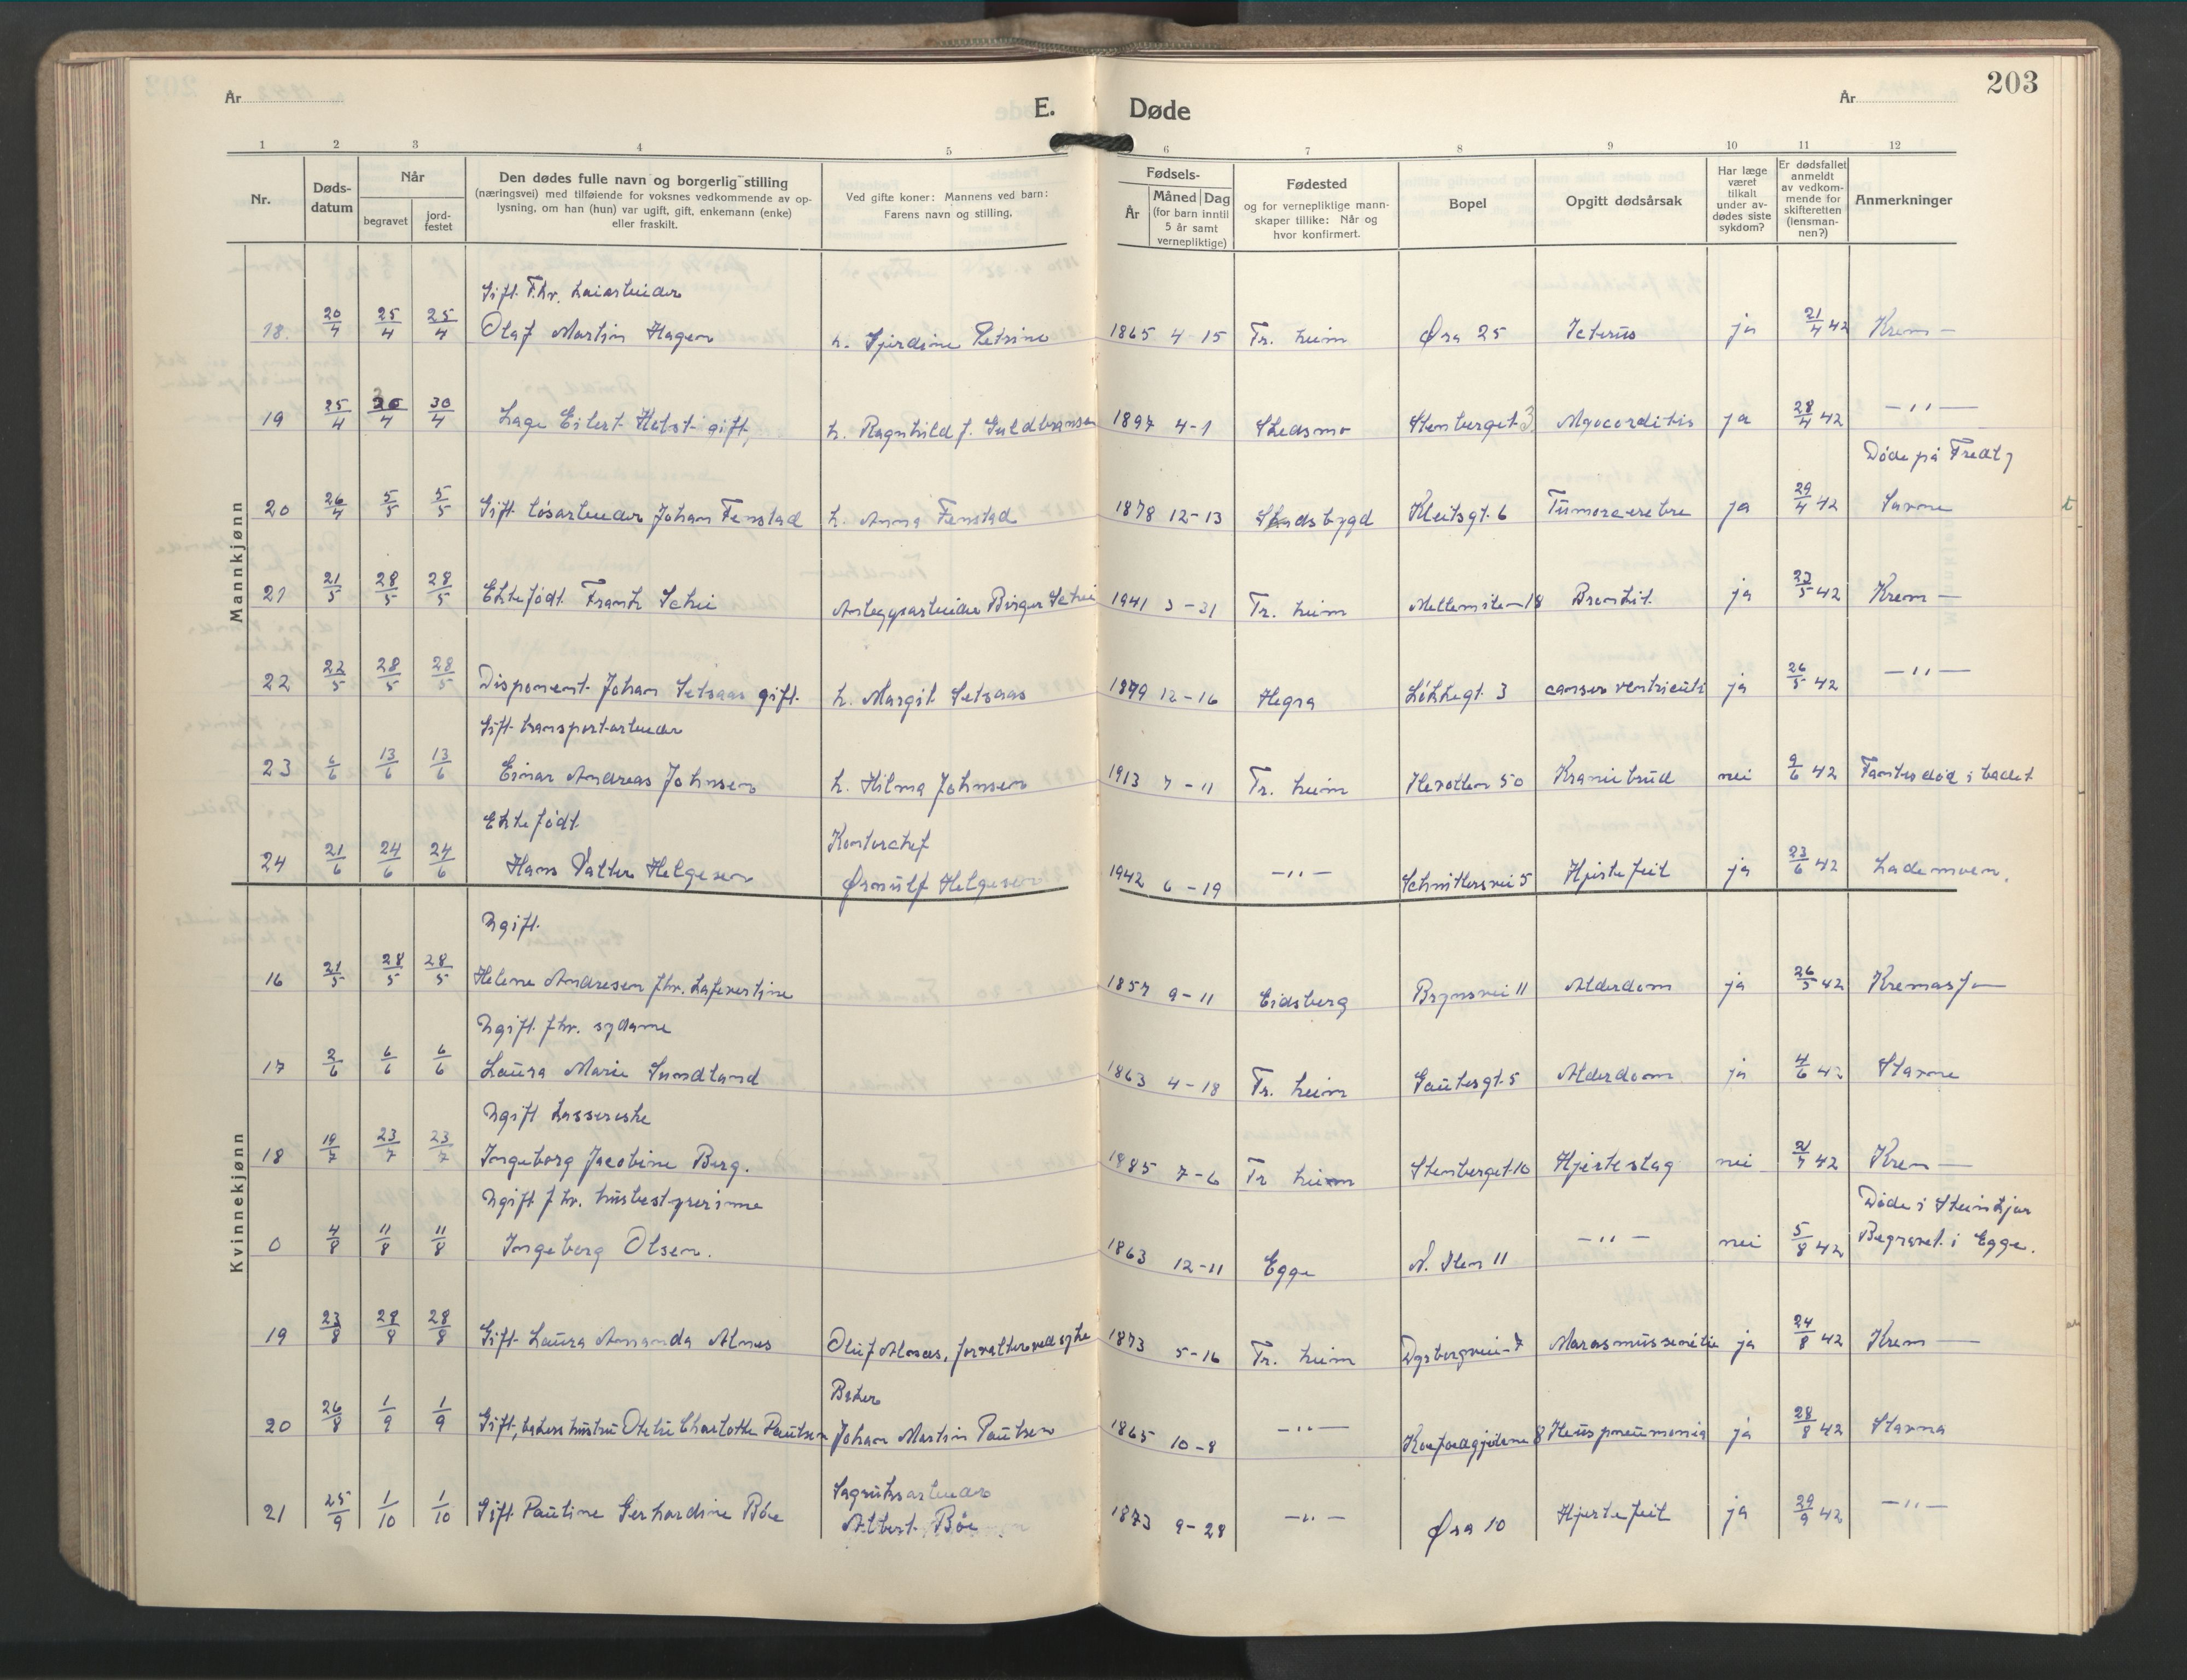 År
E.
Døde
År
203
1 2 3 4 5 6 7 8 9 10 11 12
Nr.
Døds-
datum
Når
begravet
jord-
festet
Den dødes fulle navn og borgerlig stilling
(næringsvei) med tilføiende for voksnes vedkommende av op-
lysning, om han (hun) var ugift, gift, enkemann (enke)
eller fraskilt.
Ved gifte koner: Mannens ved barn:
Farens navn og stilling.
Fødsels-
År
Måned Dag
(for barn inntil
5 år samt
vernepliktige)
Fødested
og for vernepliktige mann-
skaper tillike: Når og
hvor konfirmert.
Bopel
Opgitt dødsårsak
Har læge
været
tilkalt
under av-
dødes siste
sykdom?
Er dødsfallet
anmeldt
av vedkom-
mende for
skifteretten
(lensman-
nen?)
Anmerkninger
Mannkjønn
Gift. F.hv.
18. 20/4 25/4 25/4 Olaf Martin Hagen h. Petrine 1865 4-15 Tr.heim Øra 25 Icterus ja 21/4 42 Krem —
19 25/4 30/4 30/4 Eilert gift, h. Ragnhild f. Guldbransen 1897 4-1 Skedsmo Stenberget 3 Myocarditis ja 28/4 42 —"—
Døde på
20 26/4 5/5 5/5 Gift løsarbeider Johan Fenstad h. Anna Fenstad 1878 12-13 Stadsbygd 6 ja 29/4 42
21 21/5 28/5 28/5 Ektefødt Frank Anleggsarbeider Birger 1941 3-31 Tr.heim 18 Bronkit. ja 22/5 42 Krem —
22 22/5 28/5 28/5 Disponent Johan Setsaas gift. h. Margit Setsaas 1879 12-16 Hegra Løkkegt 3 canser ventriculi ja 26/5 42 —"—
Gift transportarbeider
23 6/6 13/6 13/6 Einar Andreas Johnsen h. Hilma Johnsen 1913 7-11 Tr.heim 50 Kraniebrud nei 9/6 42 i badet
Ektefødt
Kontorchef
24 21/6 24/6 24/6 Hans Valter Helgesen Ørnulf Helgesen 1942 6-19 —"— Schnitlersvei 5 Hjertefeil ja 23/6 42 Lademoen.
Kvinnekjønn
Ugift.
16 21/5 28/5 28/5 Helene Andresen fhv. kafevertinne 1857 9-11 Eidsberg Brynsvei 11 Alderdom ja 26/5 42
Ugift fhv. sydame
17 2/6 6/6 6/6 Laura Marie Sundland 1863 4-18 Tr.heim Gautesgt 5 Alderdom ja 4/6 42 Stavne
Ugift kassererske
18 19/7 23/7 23/7 Ingeborg Jacobine Berg. 1885 7-6 Tr.heim Stenberget 10 Hjerteslag nei 21/7 42 Krem —
Ugift fhv. husbestyrerinne
Døde i Steinkjær
0 4/8 11/8 11/8 Ingeborg Olsen. 1863 12-11 Egge N. Ilen 11 —"— nei 5/8 42 Begravet i Egge.
19 23/8 28/8 28/8 Gift Laura Amanda Alnes Oluf Alnæs, forvalter ved syke 1873 5-16 Tr.heim Dybergvei 7 Marasmus senilis ja 24/8 42 Krem —
Baker
20 26/8 1/9 1/9 Gift, bakers hustru Charlotte Paulsen Johan Martin Paulsen 1865 10-8 —"— 8 ja 28/8 42 Stavne
Sagbruksarbeider
21 25/9 1/10 1/10 Gift Pauline Gerhardine Bøe Albert Bøe 1873 9-28 —"— Øra 10 Hjertefeil ja 29/9 42 —"—